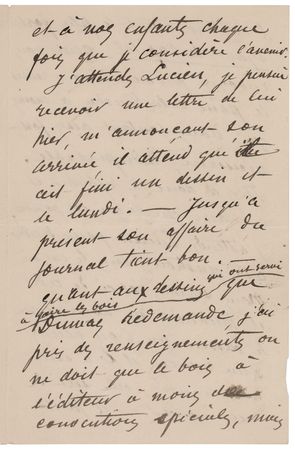 et à nos enfants chaque
fois que je considère l'avenir
J'attends Lucien, je pensais
recevoir une lettre de lui
hier, m'annonçant son
arrivée il attend que
ait fini un dessin et
le lundi. — Jusqu'à
présent son affaire du
journal tient bon.
quant aux dessins qui ont servi
à faire les bois que
Dumas redemande j'ai
pris des renseignements on
ne doit que le bois à
l'éditeur à moins de
conventions spéciales, mais